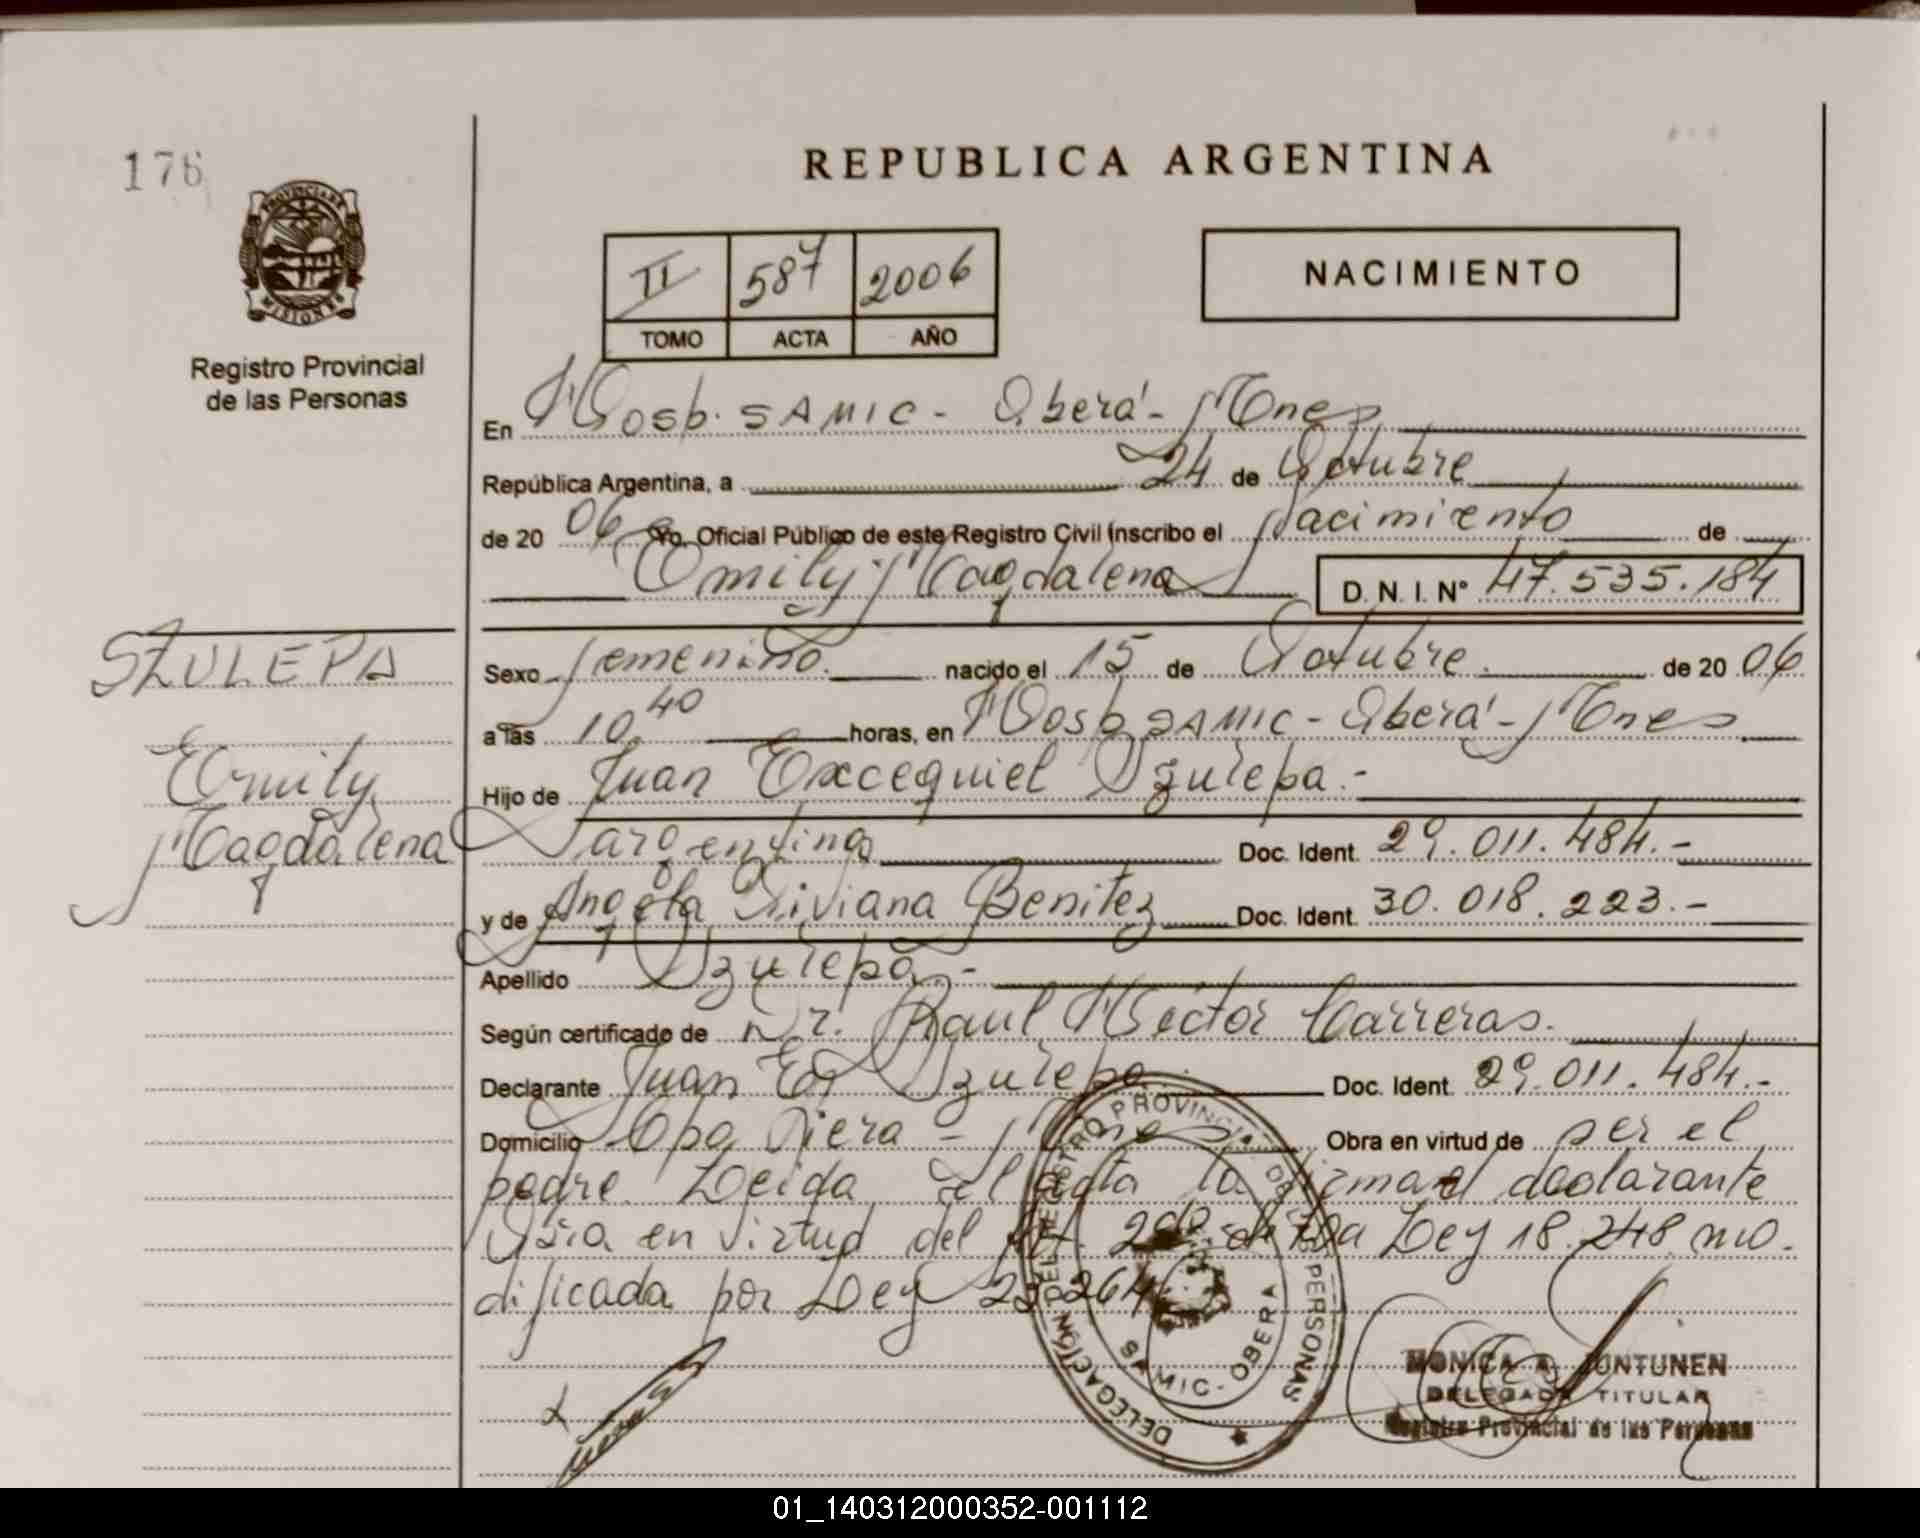 176
REPUBLICA ARGENTINA
PROVINCIA DE
MISIONES
Registro Provincial
de las Personas
II 587 2006
TOMO ACTA AÑO
NACIMIENTO
En Hosp. SAMIC - Oberá - Mnes
República Argentina, a 24 de Octubre
de 2006 Yo, Oficial Público de este Registro Civil Inscribo el Nacimiento de
Emily Magdalena D. N. I. Nº 47.535.184
SZULEPA
Emily
Magdalena
Sexo femenino. nacido el 15 de Octubre de 2006
a las 10,40 horas, en Hosp SAMIC - Oberá - Mnes
Hijo de Juan Excequiel Szulepa.-
argentino Doc. Ident. 29.011.484.-
y de Angela Viviana Benitez Doc. Ident. 30.018.223.-
Apellido Szulepa.-
Según certificado de Dr. Raul Hector Carreras.
Declarante Juan Ex Szulepa Doc. Ident. 29.011.484.-
Domicilio Cpo Viera - Mnes Obra en virtud de ser el
padre. Leida el acta la firma el declarante
en virtud del Art. de la Ley 18.248 mo-
dificada por Ley 23.264
DELEGACIÓN DEL REGISTRO PROVINCIAL DE LAS PERSONAS
SAMIC - OBERA
MONICA A. JUNTUNEN
DELEGADA TITULAR
Registro Provincial de las Personas
01_140312000352-001112